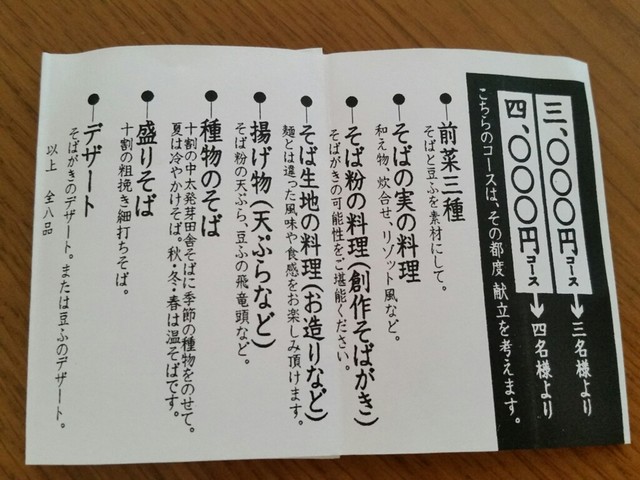 三、〇〇〇円コース→三名様より
四、〇〇〇円コース→四名様より
こちらのコースは、その都度 献立を考えます。
●前菜三種
そばと豆ふを素材にして。
●そばの実の料理
和え物、炊合せ、リゾット風など。
●そば粉の料理(創作そばがき)
そばがきの可能性をご堪能ください。
●そば生地の料理(お造りなど)
麺とは違った風味や食感をお楽しみ頂けます。
●揚げ物(天ぷらなど)
そば粉の天ぷら、豆ふの飛竜頭など。
●種物のそば
十割の中太発芽田舎そばに季節の種物をのせて。
夏は冷やかけそば。秋・冬・春は温そばです。
●盛りそば
十割の粗挽き細打ちそば。
●デザート
そばがきのデザート。または豆ふのデザート。
以上 全八品